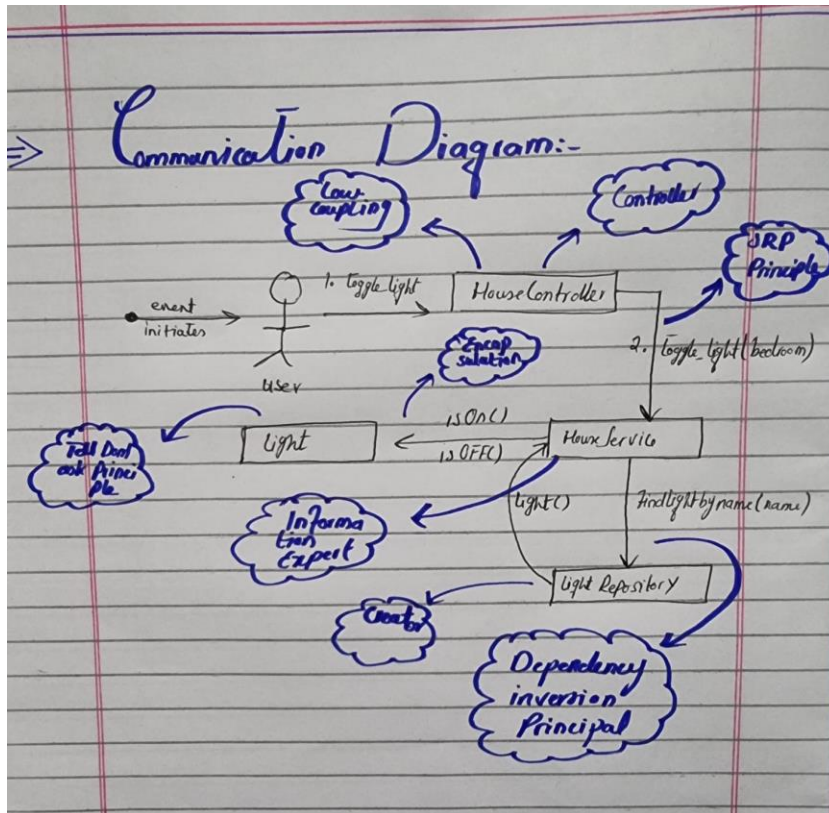 ⇒ Communication Diagram:-
Low
coupling
Controller
SRP
Principle
event
initiates
1. toggle_light
HouseController
2. toggle_light(bedroom)
User
Encap
sulation
Tell Dont
ask Princi
ple
Light
isOn()
isOFF()
HouseService
Light()
Findlightbyname(name)
Informa
tion
Expert
Light Repository
Creator
Dependency
inversion
Principal